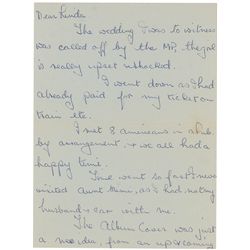 Dear Linda
The wedding I was to witness
was called off by the MP, the gal
is really upset &
I went down as I had
already paid for my ticket on
train etc.
I met 8 americans in
by arrangement, & we all had a
happy time.
Time went so fast I never
visited Aunt Mimi, as I had not my
husband & car with me.
The Album Cover was just
a new idea, from an up & coming